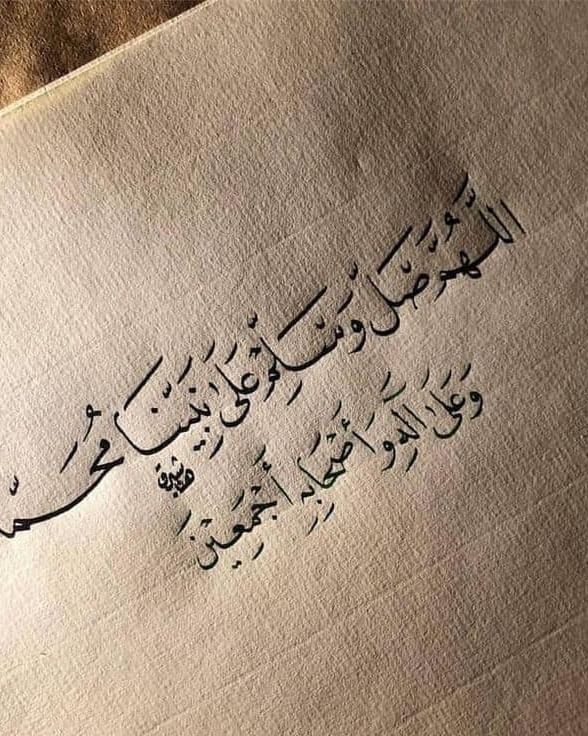 اللَّهُمَّ صَلِّ وَسَلِّمْ عَلَىٰ نَبِيِّنَا مُحَمَّ
وَعَلَىٰ آلِهِ وَأَصْحَابِهِ أَجْمَعِيْنَ